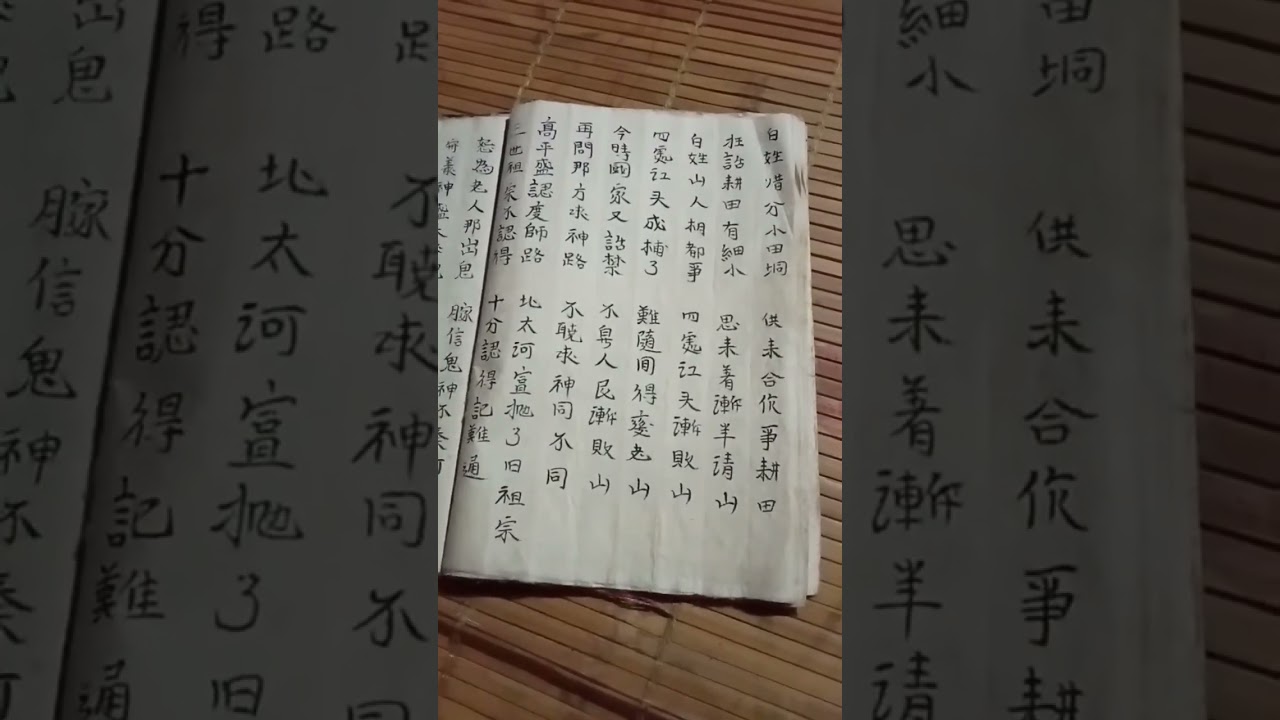 白姓惜分小田垌 供耒合你爭耕田
在訟耕田有細小 思耒着漸半请山
白姓山人相都爭 四處江头漸敗山
四處江头成補了 難隨间得變老山
今時國家又訟禁 不粤人民漸敗山
再問那方求神路 不聴求神同不同
高平盛認度師路 北太河富抛了旧祖宗
三世祖宗不認得 十分認得記難通
恕為老人那出鬼 腺信鬼神